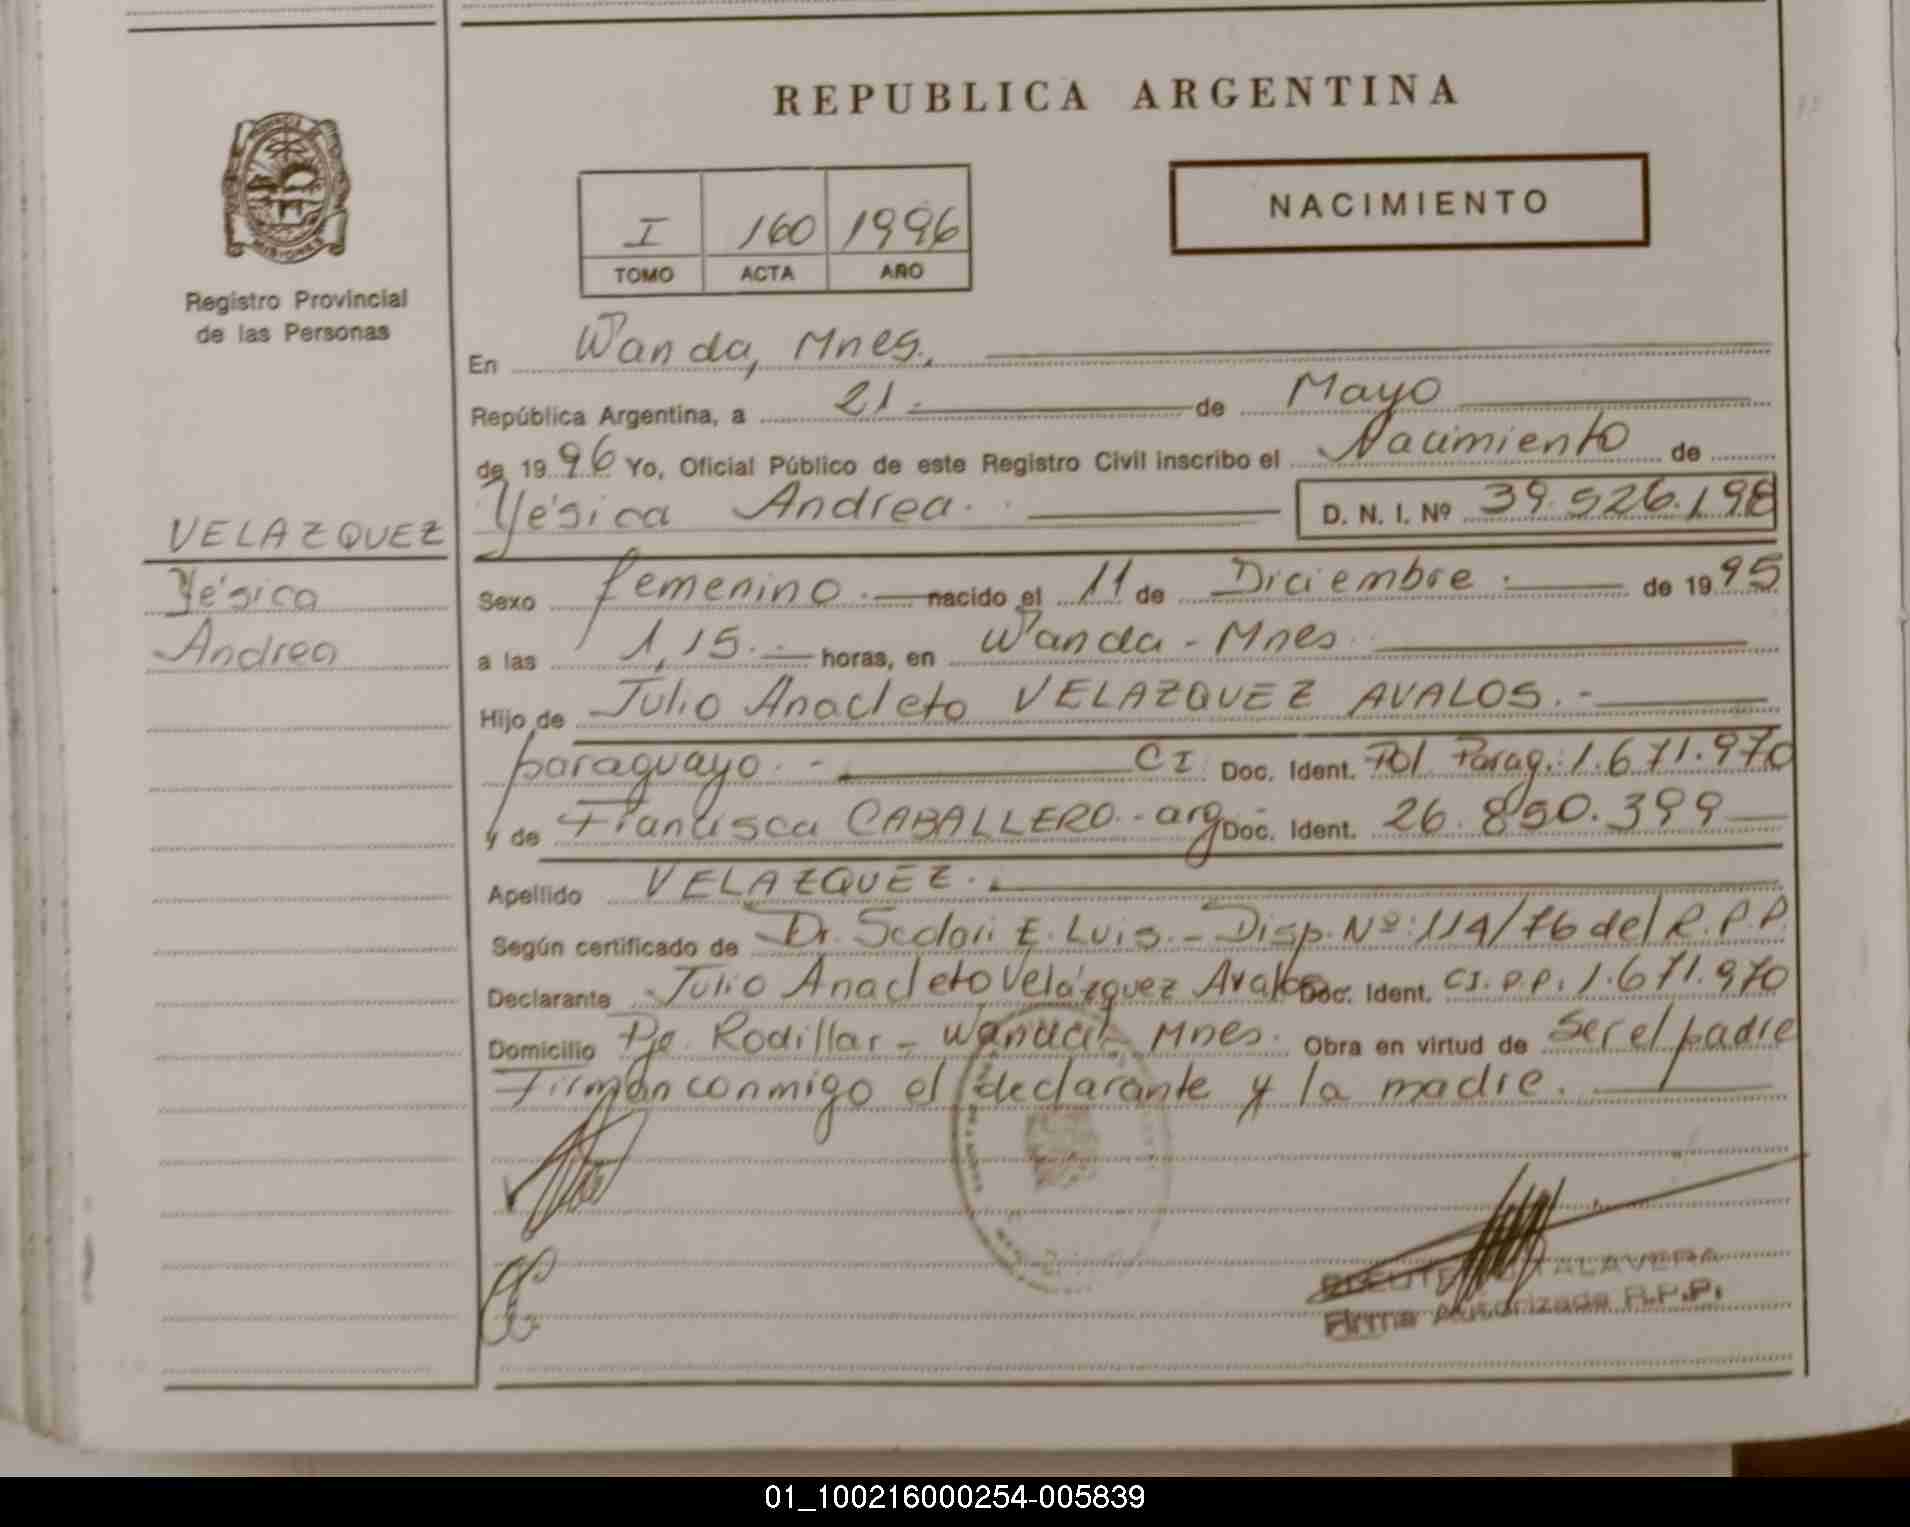 REPUBLICA ARGENTINA
PROVINCIA
MISIONES
Registro Provincial
de las Personas
I 160 1996
TOMO ACTA AÑO
NACIMIENTO
En Wanda, Mnes.
República Argentina, a 21 de Mayo
de 1996 Yo, Oficial Público de este Registro Civil inscribo el Nacimiento de
Yésica Andrea. D. N. I. Nº 39.526.198
VELAZQUEZ
Yésica
Andrea
Sexo femenino. nacido el 11 de Diciembre. de 1995
a las 1,15. horas, en Wanda - Mnes.
Hijo de Julio Anacleto VELAZQUEZ AVALOS.-
paraguayo.- CI Doc. Ident. Pol. Parag.: 1.671.970
y de Francisca CABALLERO.- arg Doc. Ident. 26.850.399
Apellido VELAZQUEZ.
Según certificado de Dr. E. Luis.- Disp. Nº: 114/76 del R.P.P.
Declarante Julio Anacleto Velázquez Avalos Doc. Ident. CI.P.P. 1.671.970
Domicilio Pje. Rodillar - Wanda - Mnes. Obra en virtud de ser el padre
Firman conmigo el declarante y la madre.
TALAVERA
Firma Autorizada R.P.P.
01_100216000254-005839